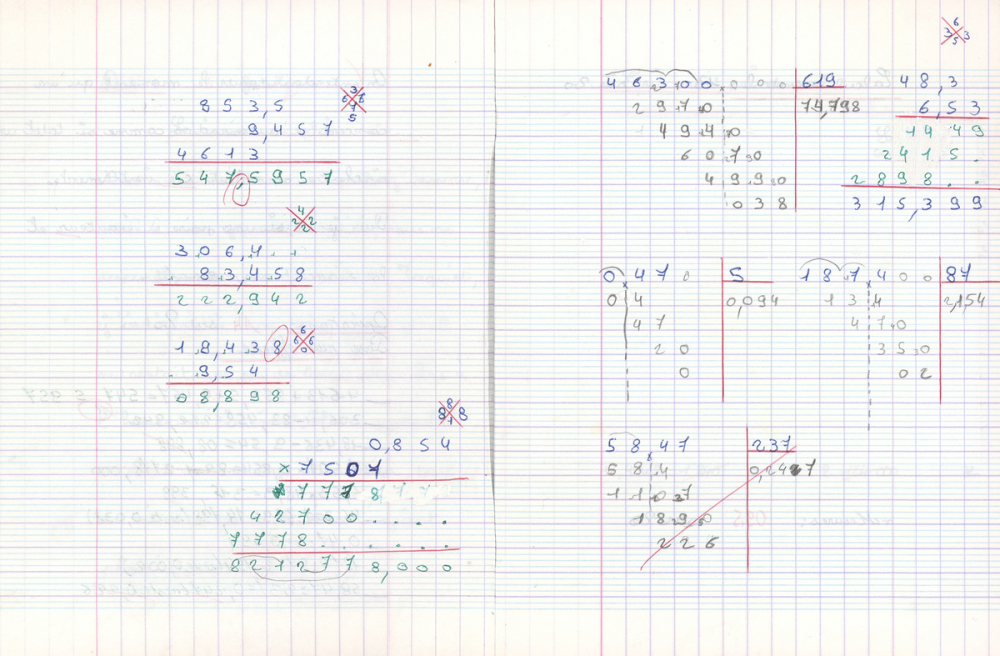 8 5 3,5
9,4 5 7
4 6 1 3
5 4 7,5 9 5 7
3 0 6,4 . .
8 3,4 5 8
2 2 2,9 4 2
1 9,4 3 8
9,5 4
0 8,8 9 8
0,8 5 4
× 7 5 0 7
4 2 7 0 0 . . . .
7 7 7 8 . . . . . .
8 2 1 2 7 7 8,0 0 0
4 6 3 0 0 , 0 0 0 619
2 9 7 0 74,798
4 9 4 0
6 0 7 0
4 9 9 0
0 3 8
4 8,3
6,5 3
1 4 4 9
2 4 1 5 .
2 8 9 8 . .
3 1 5,3 9 9
0,4 7 0 5
0 4 0,094
4 7
2 0
0
1 8 7,4 0 0 87
1 3 4 2,154
4 7 0
3 5 0
0 2
5 8,4 7 237
5 8 4
1 1 0 7
1 8 9 0
2 2 6